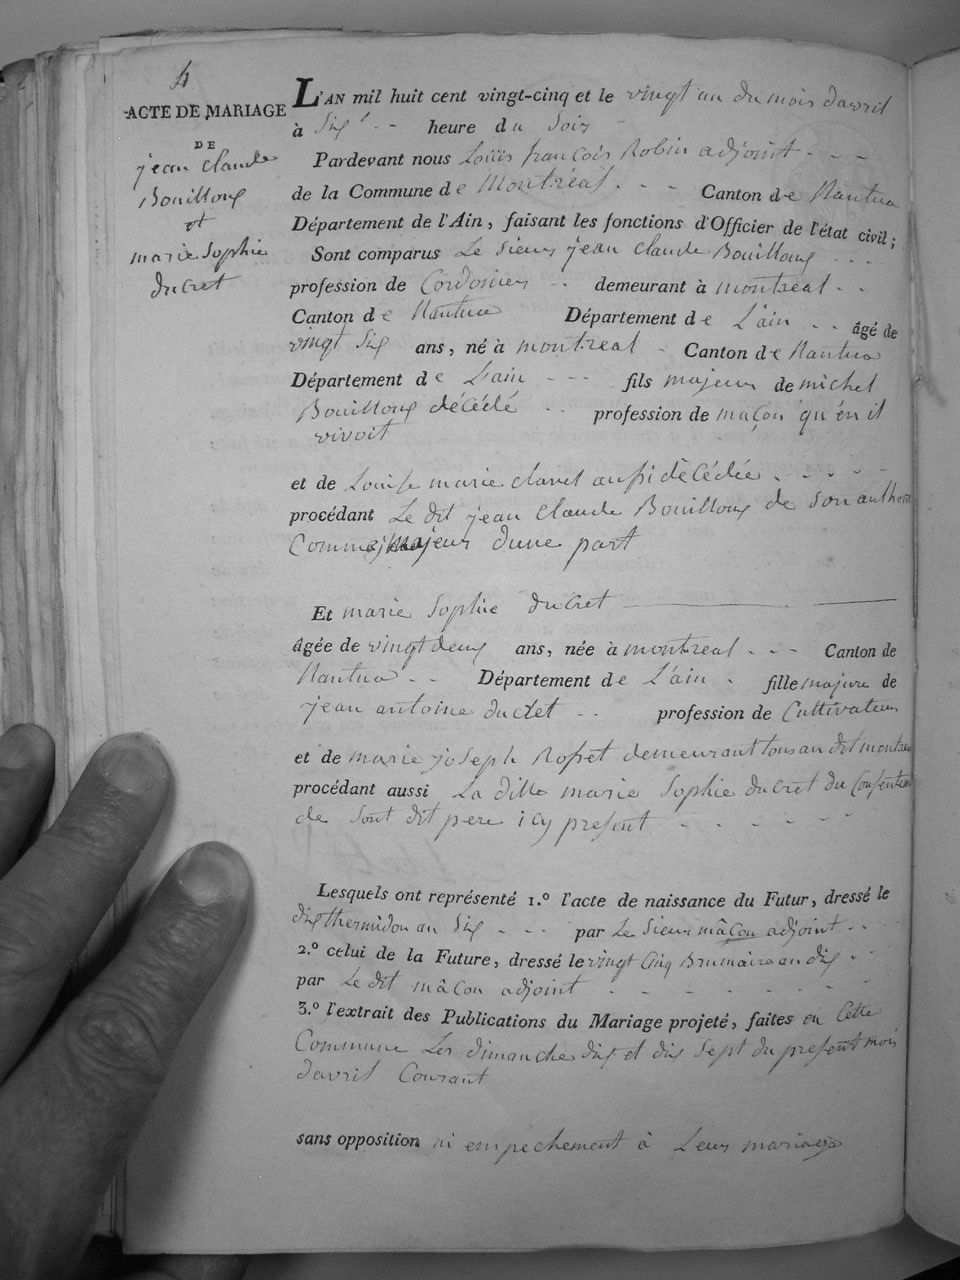 4
ACTE DE MARIAGE
DE
jean Claude
Bouilloux
et
marie Sophie
ducret
L'AN mil huit cent vingt-cinq et le vingt un du mois davril
à Six heure du Soir
Pardevant nous Loüis françois Robin adjoint
de la Commune de Montréal Canton de Nantua
Département de l'Ain, faisant les fonctions d'Officier de l'état civil;
Sont comparus Le Sieur jean Claude Bouilloux
profession de Cordonier demeurant à montréal
Canton de Nantua Département de L'ain âgé de
vingt Six ans, né à montreal Canton de Nantua
Département de L'ain fils majeur de michel
Bouilloux décédé profession de maçon qu'en il
vivoit
et de Louise marie claret aussi décédée
procédant Le dit jean Claude Bouilloux de son authori
Comme majeur dune part
Et marie Sophie ducret
âgée de vingt deux ans, née à montreal Canton de
Nantua Département de L'ain fille majeure de
jean antoine ducret profession de Cultivateur
et de marie joseph Rosset demeurant tous au dit montreal
procédant aussi La ditte marie Sophie ducret du Consentem
de Sont dit pere icy present
Lesquels ont représenté 1.º l'acte de naissance du Futur, dressé le
dix thermidor an Six par Le Sieur mâcon adjoint
2.º celui de la Future, dressé le vingt Cinq Brumaire an dix
par Le dit mâcon adjoint
3.º l'extrait des Publications du Mariage projeté, faites en Cette
Commune Les dimanche dix et dix Sept du present mois
davril Courant
sans opposition ni empechement à Leur mariage